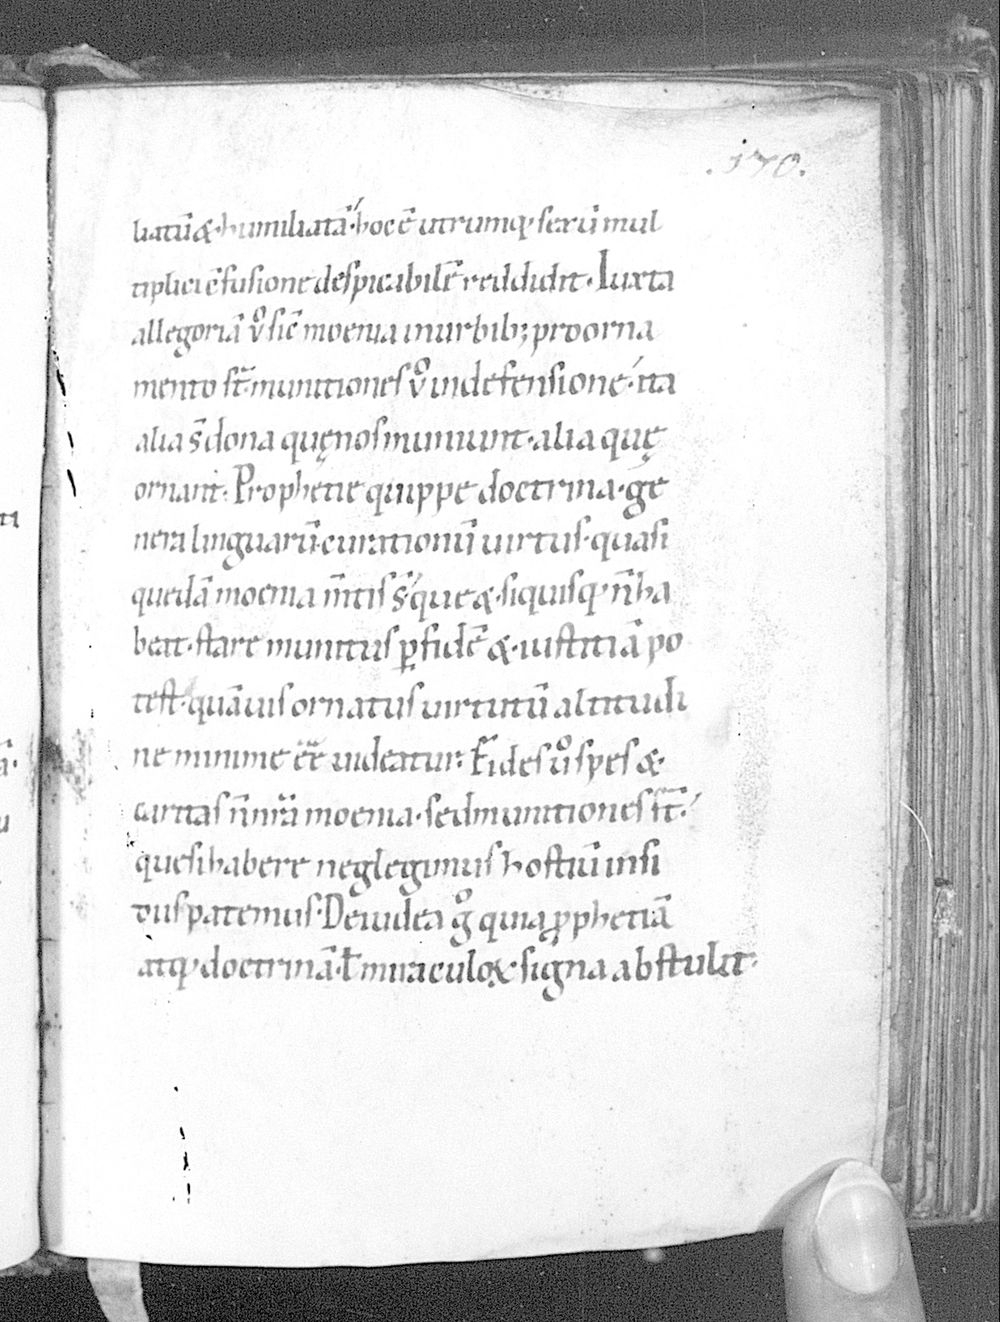 .170.
liatū &·humiliatā·hoc ē utrumq; sexū mul
tiplici c̄fusione despicabilē reddidit·Iuxta
allegoriā v̊ sic̄ moenia inurbib; proorna
mento st̄·munitiones v̊ indefensione·ita
alia s̄ dona quę nos muniunt·alia quę
ornant·Prophetie quippe doctrina·ge
nera linguarū·curationū uirtus·quasi
quedā moenia m̄tis s̄·que &·siquisq; n̄ ha
beat·stare munitus ꝑ fidē &·iustitiā po
test·quāuis ornatus uirtutū altitudi
ne minime ēē uideatur· Fides ů spes &·
caritas n̄ nr̄a moenia·sed munitiones st̄·
que si habere neglegimus hostiū insi
diis patemus·De iudea g̊ quia ꝓphetiā
atq; doctrinā·ł miraculoꝝ signa abstulit·
ti
ā·
u